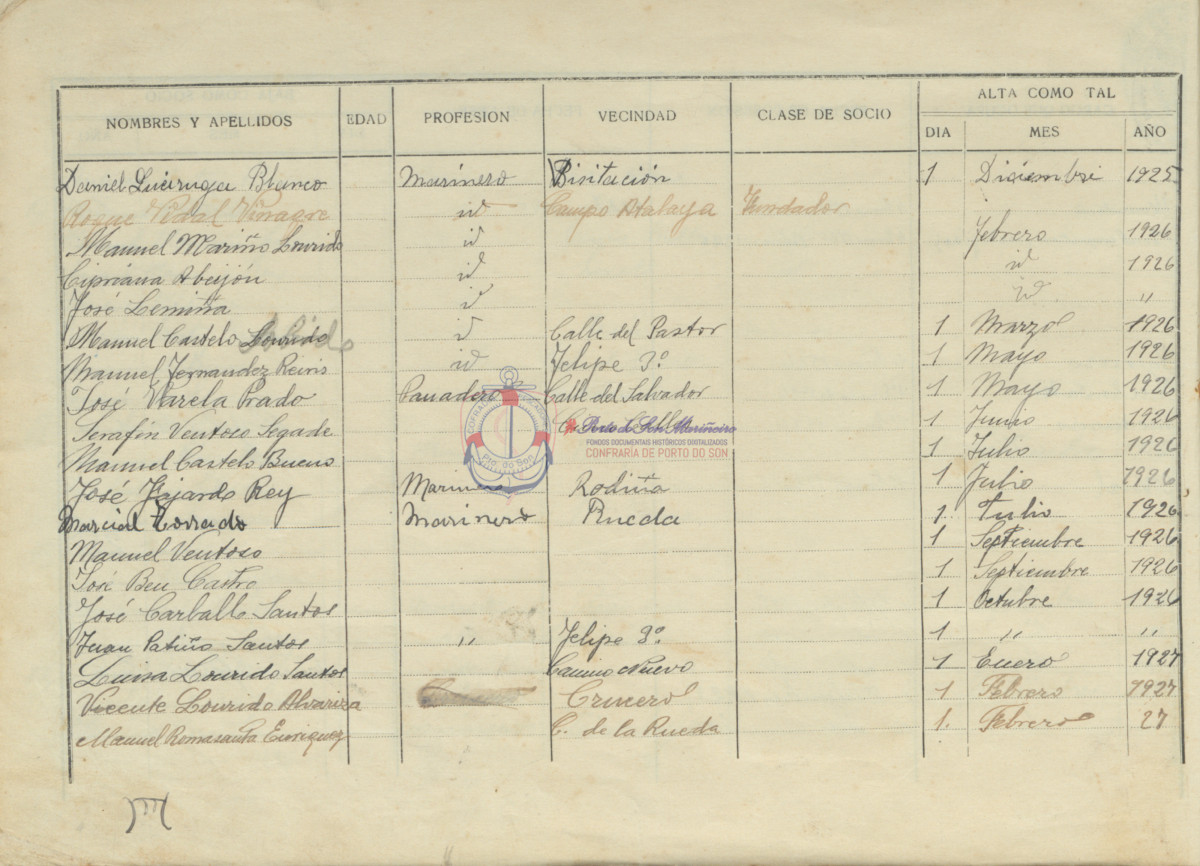 ALTA COMO TAL
NOMBRES Y APELLIDOS EDAD PROFESION VECINDAD CLASE DE SOCIO DIA MES AÑO
Daniel Blanco Marinero Bisitación 1 Diciembre 1925
Roque Vidal Vinagre id Campo Atalaya Fundador
Manuel Mariño Lourido id Febrero 1926
Cipriana Abeijón id id 1926
José Lemiña id id "
Manuel Castelo Lourido id Calle del Pastor 1 Marzo 1926
Manuel Fernandez Reiris id Felipe 3º 1 Mayo 1926
José Varela Prado Panadero Calle del Salvador 1 Mayo 1926
Serafín Ventoso Segade 1 Junio 1926
Manuel Castelo Bueno 1 Julio 1926
José Fajardo Rey Marinero Rodiña 1 Julio 1926
Marcial Torrado Marinero Rueda 1. Julio 1926
Manuel Ventoso 1 Septiembre 1926
José Ben Castro 1 Septiembre 1926
José Carballo Santos 1 Octubre 1926
Juan Patiño Santos " Felipe 3º 1 " "
Luisa Lourido Santos Camino Nuevo 1 Enero 1927
Vicente Lourido Crucero 1 Febrero 1927
Manuel Romasanta Enriquez C. de la Rueda 1. Febrero 27
Pto. do Son
Porto do Son Mariñeiro
FONDOS DOCUMENTAIS HISTÓRICOS DIXITALIZADOS
CONFRARÍA DE PORTO DO SON